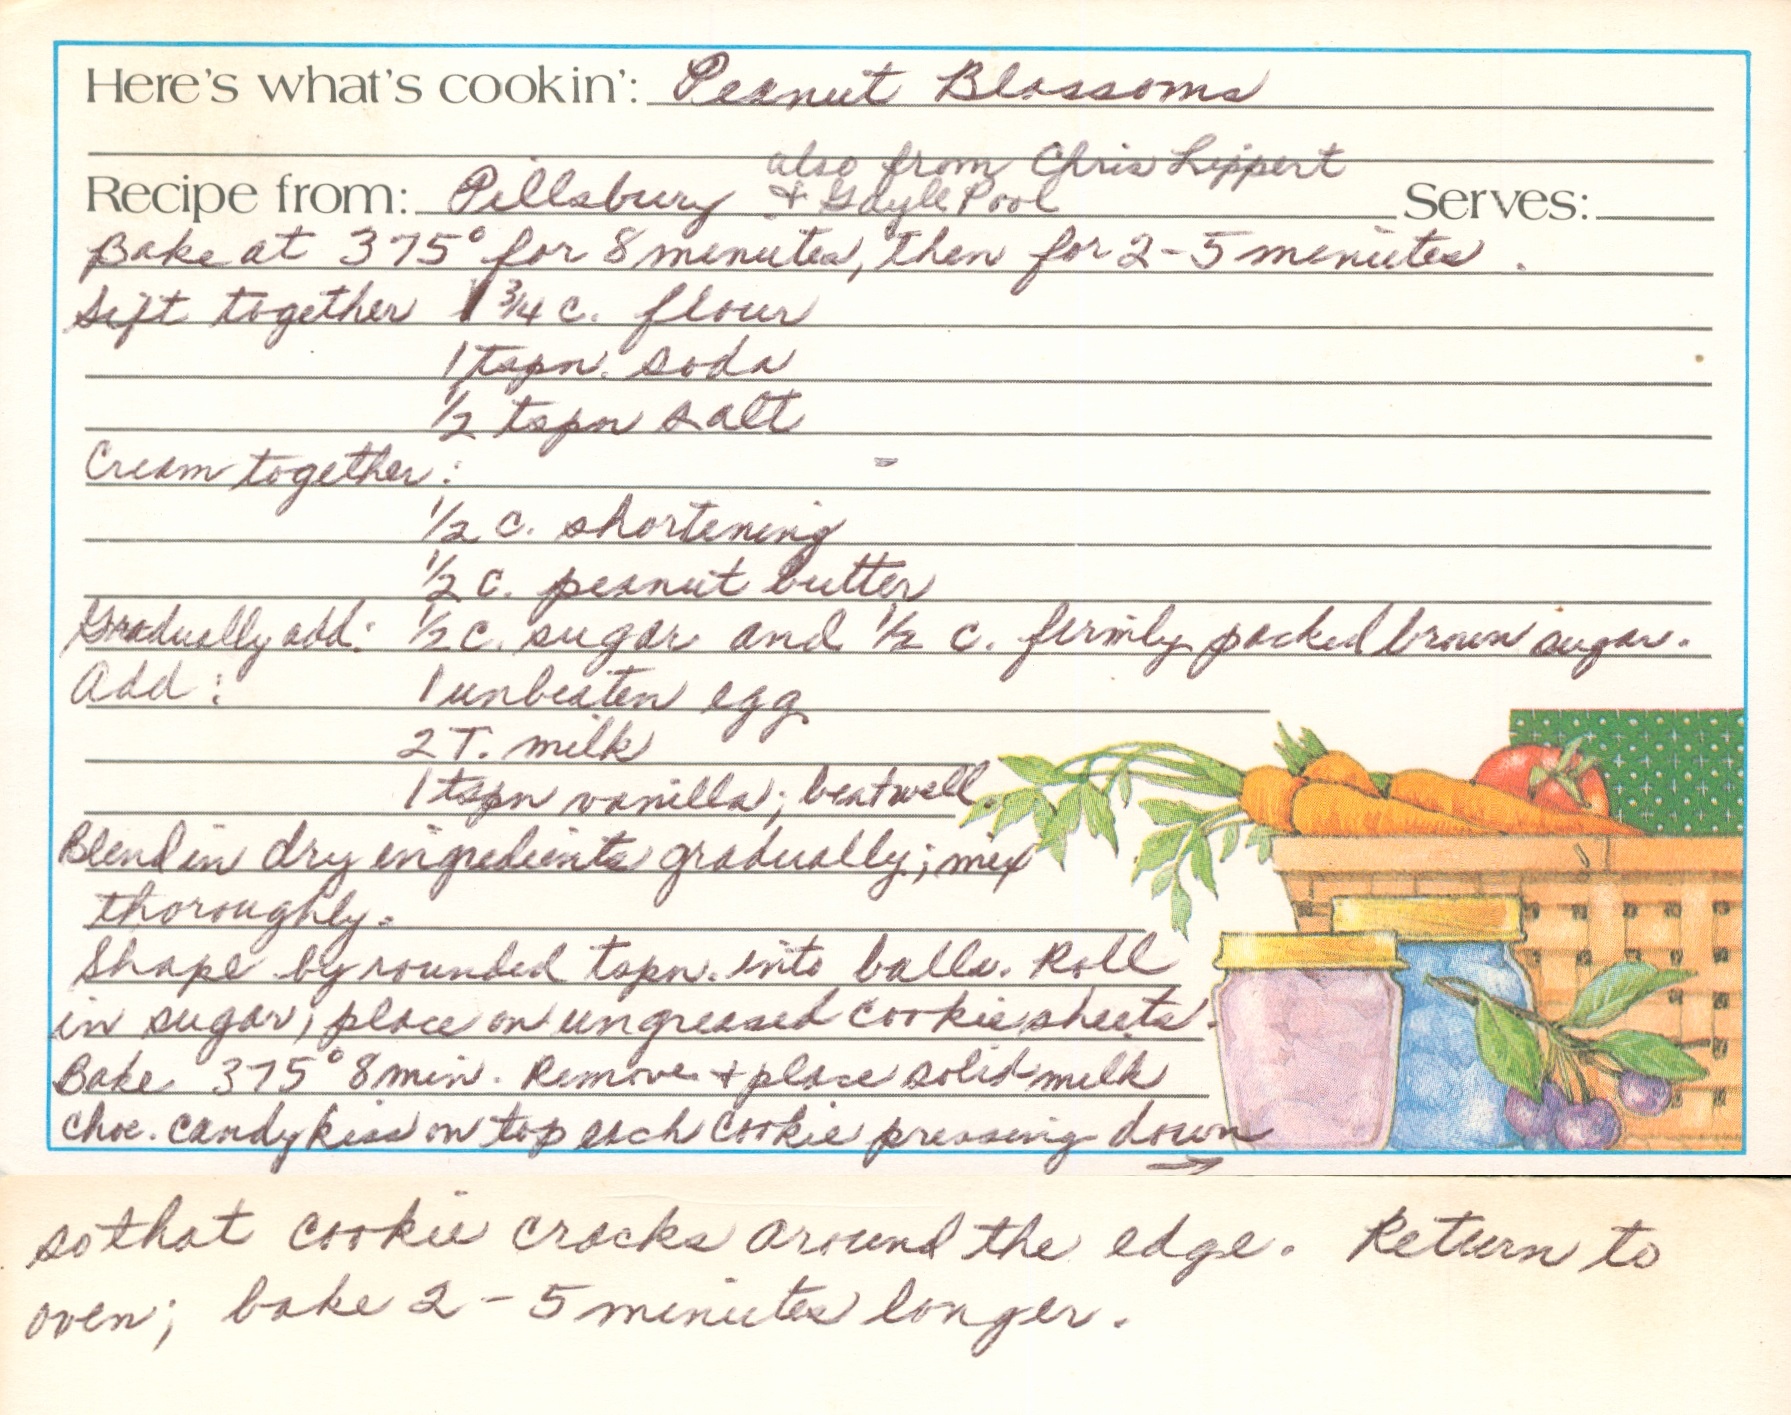 Here's what's cookin': Peanut Blossoms
also from Chris Lippert
Recipe from: Pillsbury & Gayle Pool Serves:
Bake at 375° for 8 minutes, then for 2-5 minutes.
Sift together 1 3/4 c. flour
1 tspn. soda
1/2 tspn salt
Cream together:
1/2 c. shortening
1/2 c. peanut butter
Gradually add: 1/2 c. sugar and 1/2 c. firmly packed brown sugar.
Add: 1 unbeaten egg
2 T. milk
1 tspn vanilla; beat well.
Blend in dry ingredients gradually; mix
thoroughly.
Shape by rounded tspn. into balls. Roll
in sugar; place on ungreased cookie sheets.
Bake 375° 8 min. Remove + place solid milk
choc. candy kiss on top each cookie pressing down →
so that cookie cracks around the edge. Return to
oven; bake 2-5 minutes longer.